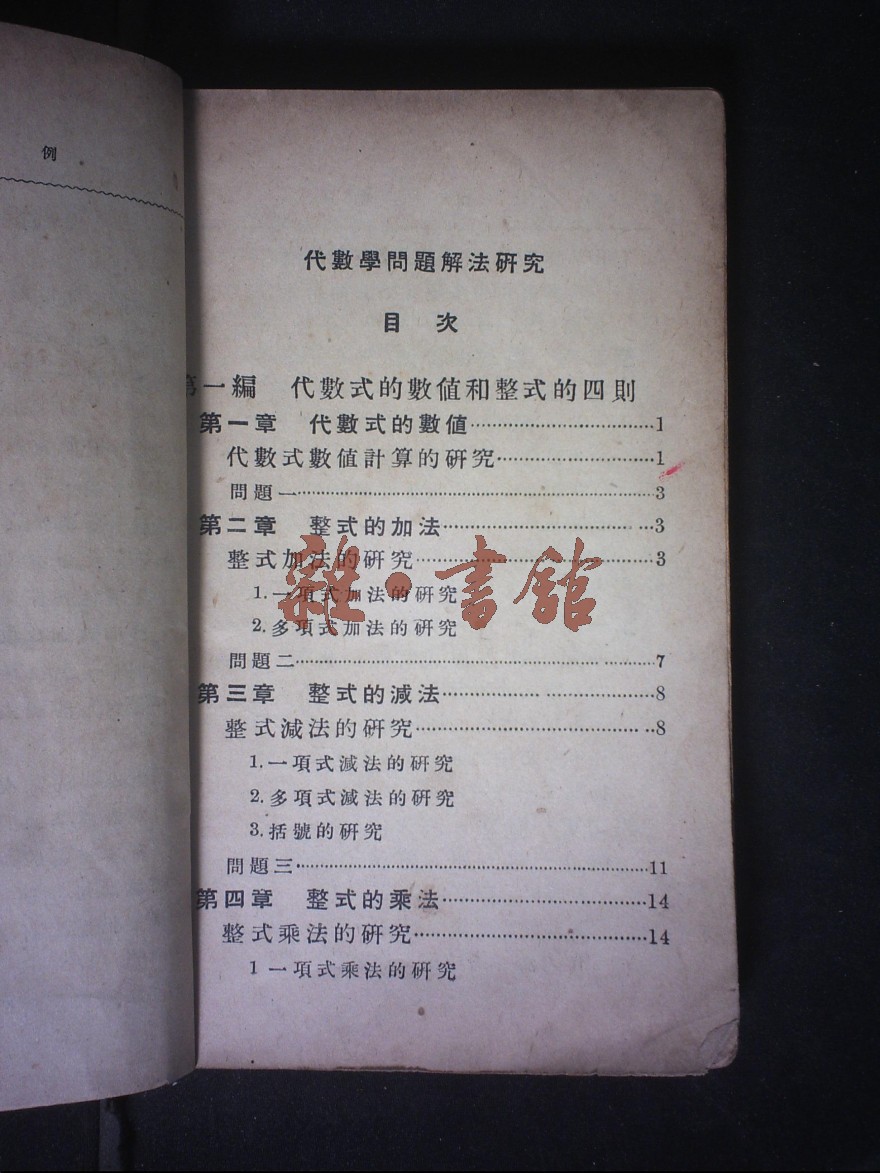 例
代數學問題解法研究
目 次
第一編 代數式的數值和整式的四則
第一章 代數式的數值……1
代數式數值計算的研究……1
問題一……3
第二章 整式的加法……3
整式加法的研究……3
1.一項式加法的研究
2.多項式加法的研究
問題二……7
第三章 整式的減法……8
整式減法的研究……8
1.一項式減法的研究
2.多項式減法的研究
3.括號的研究
問題三……11
第四章 整式的乘法……14
整式乘法的研究……14
1 一項式乘法的研究
雜·書館